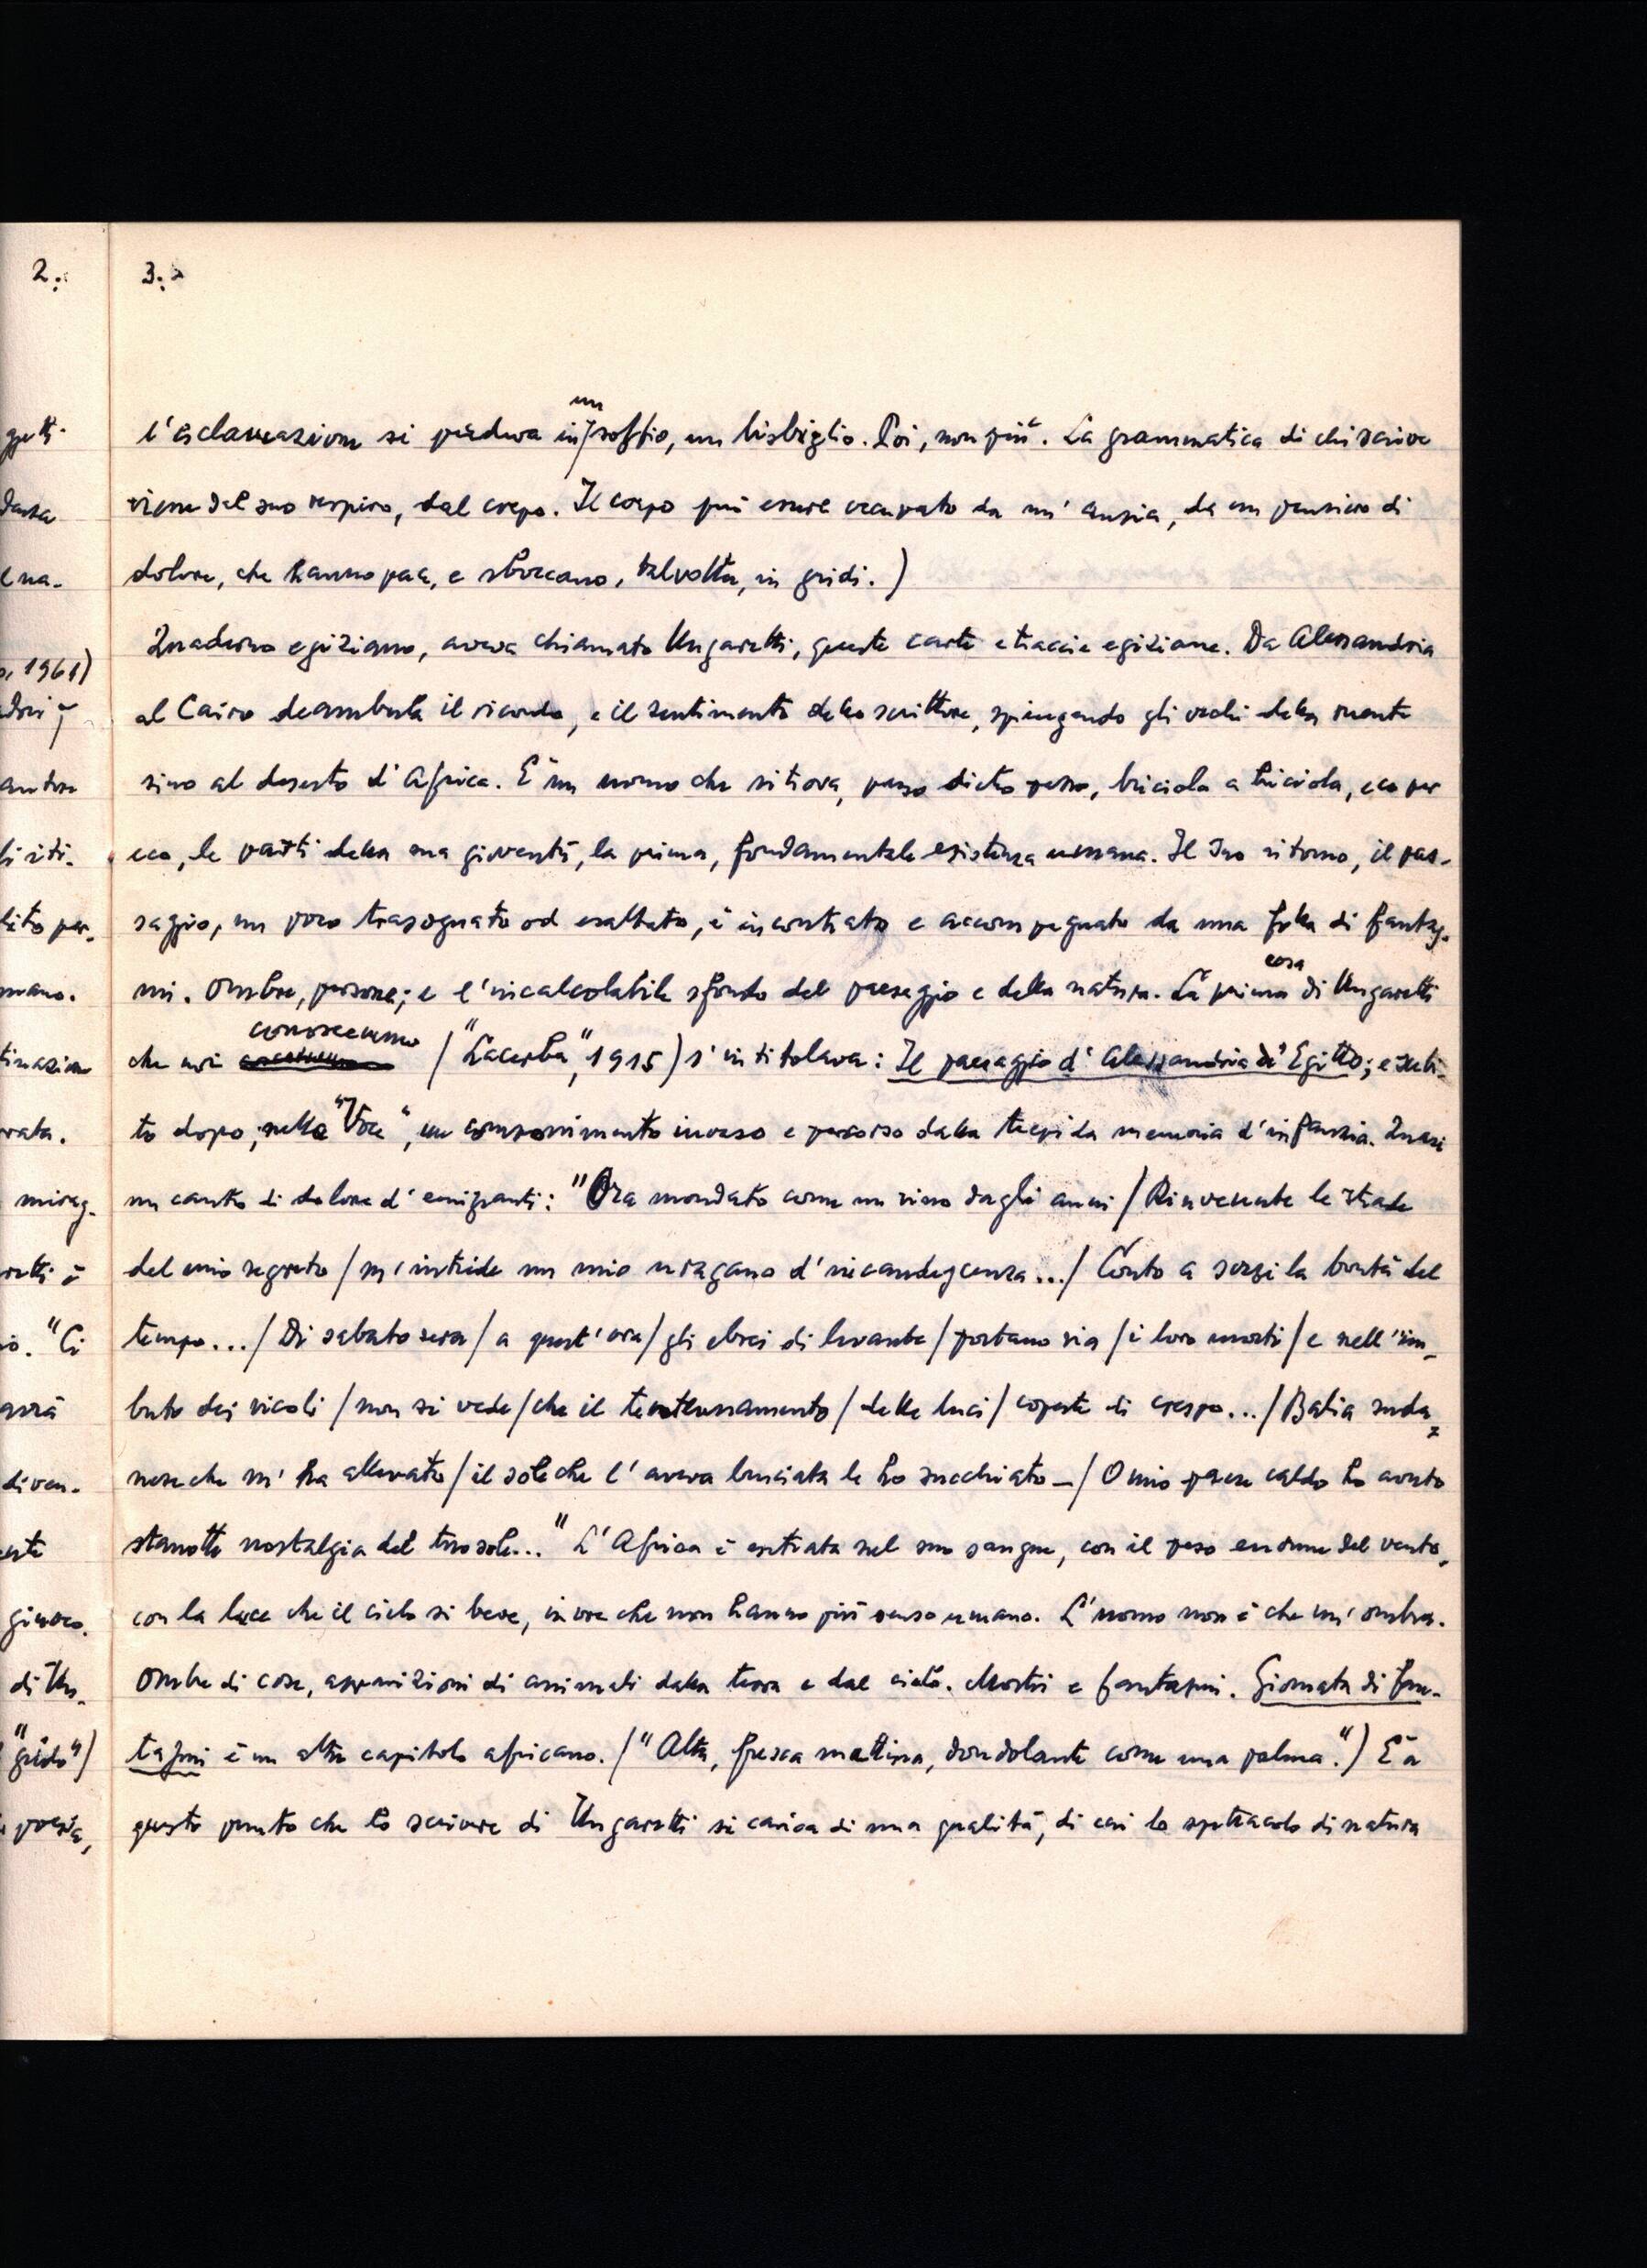 2.
3.
l'esclamazione si perdeva in un soffio, un bisbiglio. Poi, non più. La grammatica di chi scrive
viene dal suo respiro, dal corpo. Il corpo può essere occupato da un' ansia, da un pensiero di
dolore, che hanno pace, e sboccano, talvolta, in gridi.)
Quaderno egiziano, aveva chiamato Ungaretti, queste carte e tracce egiziane. Da Alessandria
al Cairo deambula il ricordo, e il sentimento dello scrittore, spingendo gli occhi della mente
sino al deserto d' Africa. È un uomo che ritrova, passo dietro passo, briciola a briciola, eco per
eco, le parti della sua gioventù, la prima, fondamentale esistenza umana. Il suo ritorno, il pas-
saggio, un poco trasognato od esaltato, è incontrato e accompagnato da una folla di fantas-
mi. Ombre, persone; e l'incalcolabile sfondo del paesaggio e della natura. La prima cosa di Ungaretti
che noi conoscemmo ("Lacerba", 1915) s'intitolava: Il paesaggio d' Alessandria d' Egitto; e subi-
to dopo, nella "Voce", un componimento inverso e percorso dalla trepida memoria d'infanzia. Quasi
un canto di dolore d' emigranti: "Ora mondato come un vino dagli anni / Rinvenute le strade
del mio segreto / m'intride un mio uragano d'incandescenza... / Conto a sorsi la bontà del
tempo... / Di sabato sera / a quest'ora / gli ebrei di levante / portano via / i loro morti / e nell'im-
buto dei vicoli / non si vede / che il tentennamento / delle luci / coperte di crespo... / Balia suda-
nese che m' ha allevato / il sole che l' aveva bruciata le ho succhiato — / O mio paese caldo ho avuto
stanotte nostalgia del tuo sole..." L' Africa è entrata nel suo sangue, con il peso enorme del vento,
con la luce che il cielo si beve, in ore che non hanno più senso umano. L' uomo non è che un' ombra.
Ombre di cose, apparizioni di animali dalla terra e dal cielo. Mostri e fantasmi. Giornata di fan-
tasmi è un altro capitolo africano. ("Alta, fresca mattina, dondolante come una palma".) È a
questo punto che lo scrivere di Ungaretti si carica di una qualità, di cui lo spettacolo di natura